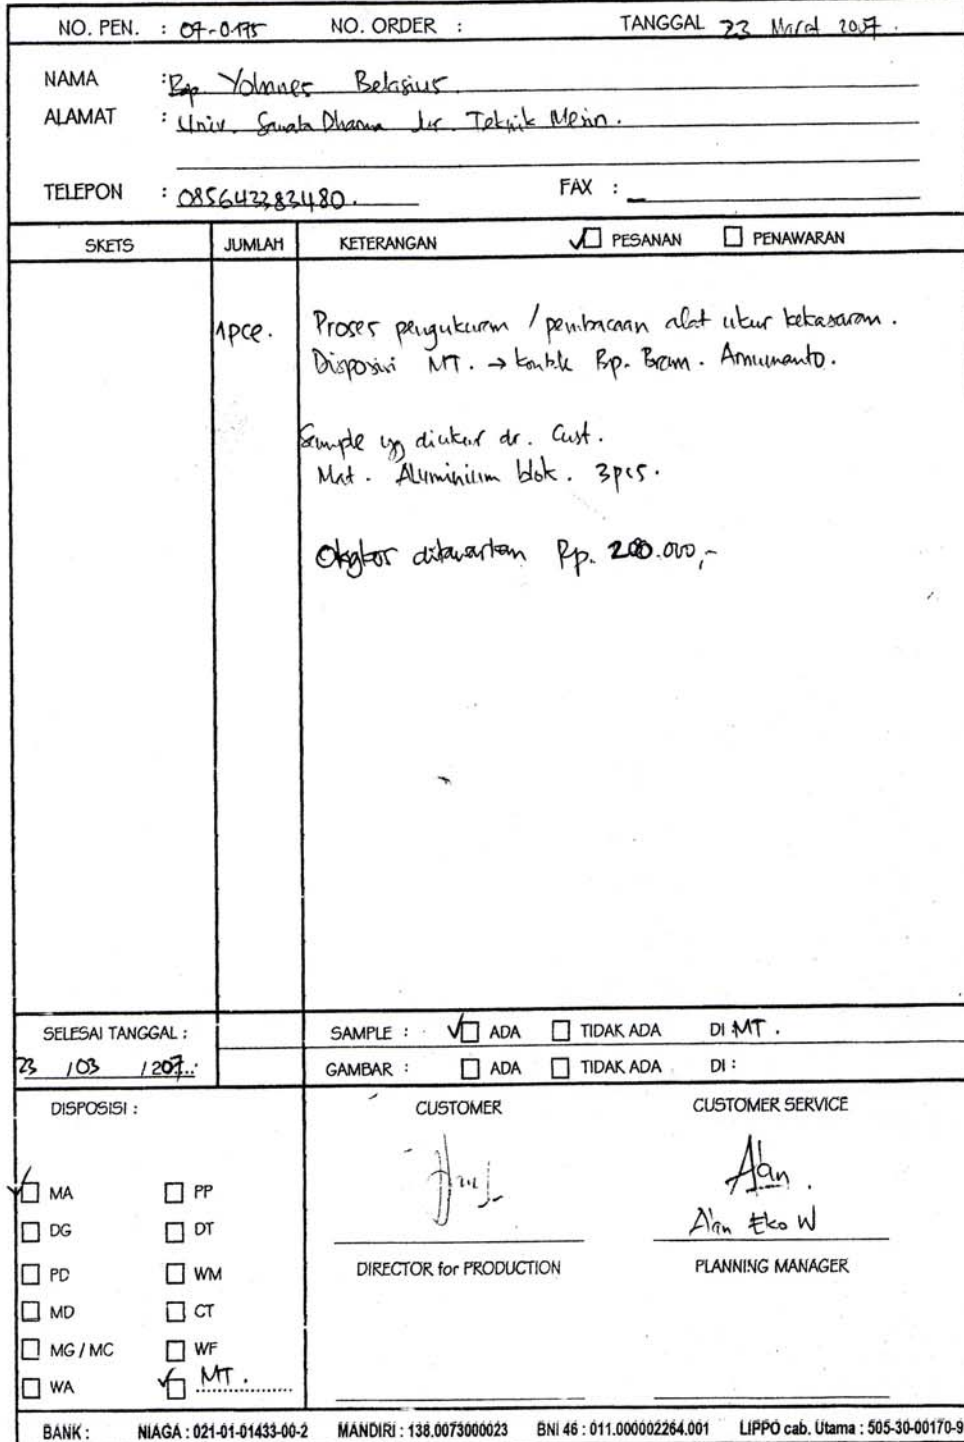 NO. PEN. : 07-0175 NO. ORDER : TANGGAL 23 Maret 2007.
NAMA : Bp. Yohanes Belasius.
ALAMAT : Univ. Sanata Dharma Jur. Teknik Mesin.
TELEPON : 085643383480. FAX : -
SKETS JUMLAH KETERANGAN PESANAN PENAWARAN
1pce. Proses pengukuran / pembacaan alat ukur kekasaran.
Disposisi MT. → kontak Bp. Bram.
Sample yg diukur dr. Cust.
Mat. Aluminium blok. 3pcs.
ditawarkan Rp. 200.000,-
SELESAI TANGGAL : SAMPLE : ADA TIDAK ADA DI MT.
23 / 03 / 207... GAMBAR : ADA TIDAK ADA DI :
DISPOSISI : CUSTOMER CUSTOMER SERVICE
Alan.
MA PP
Alan Eko W
DG DT
PD WM DIRECTOR for PRODUCTION PLANNING MANAGER
MD CT
MG / MC WF
WA MT.
BANK : NIAGA : 021-01-01433-00-2 MANDIRI : 138.0073000023 BNI 46 : 011.000002264.001 LIPPO cab. Utama : 505-30-00170-9